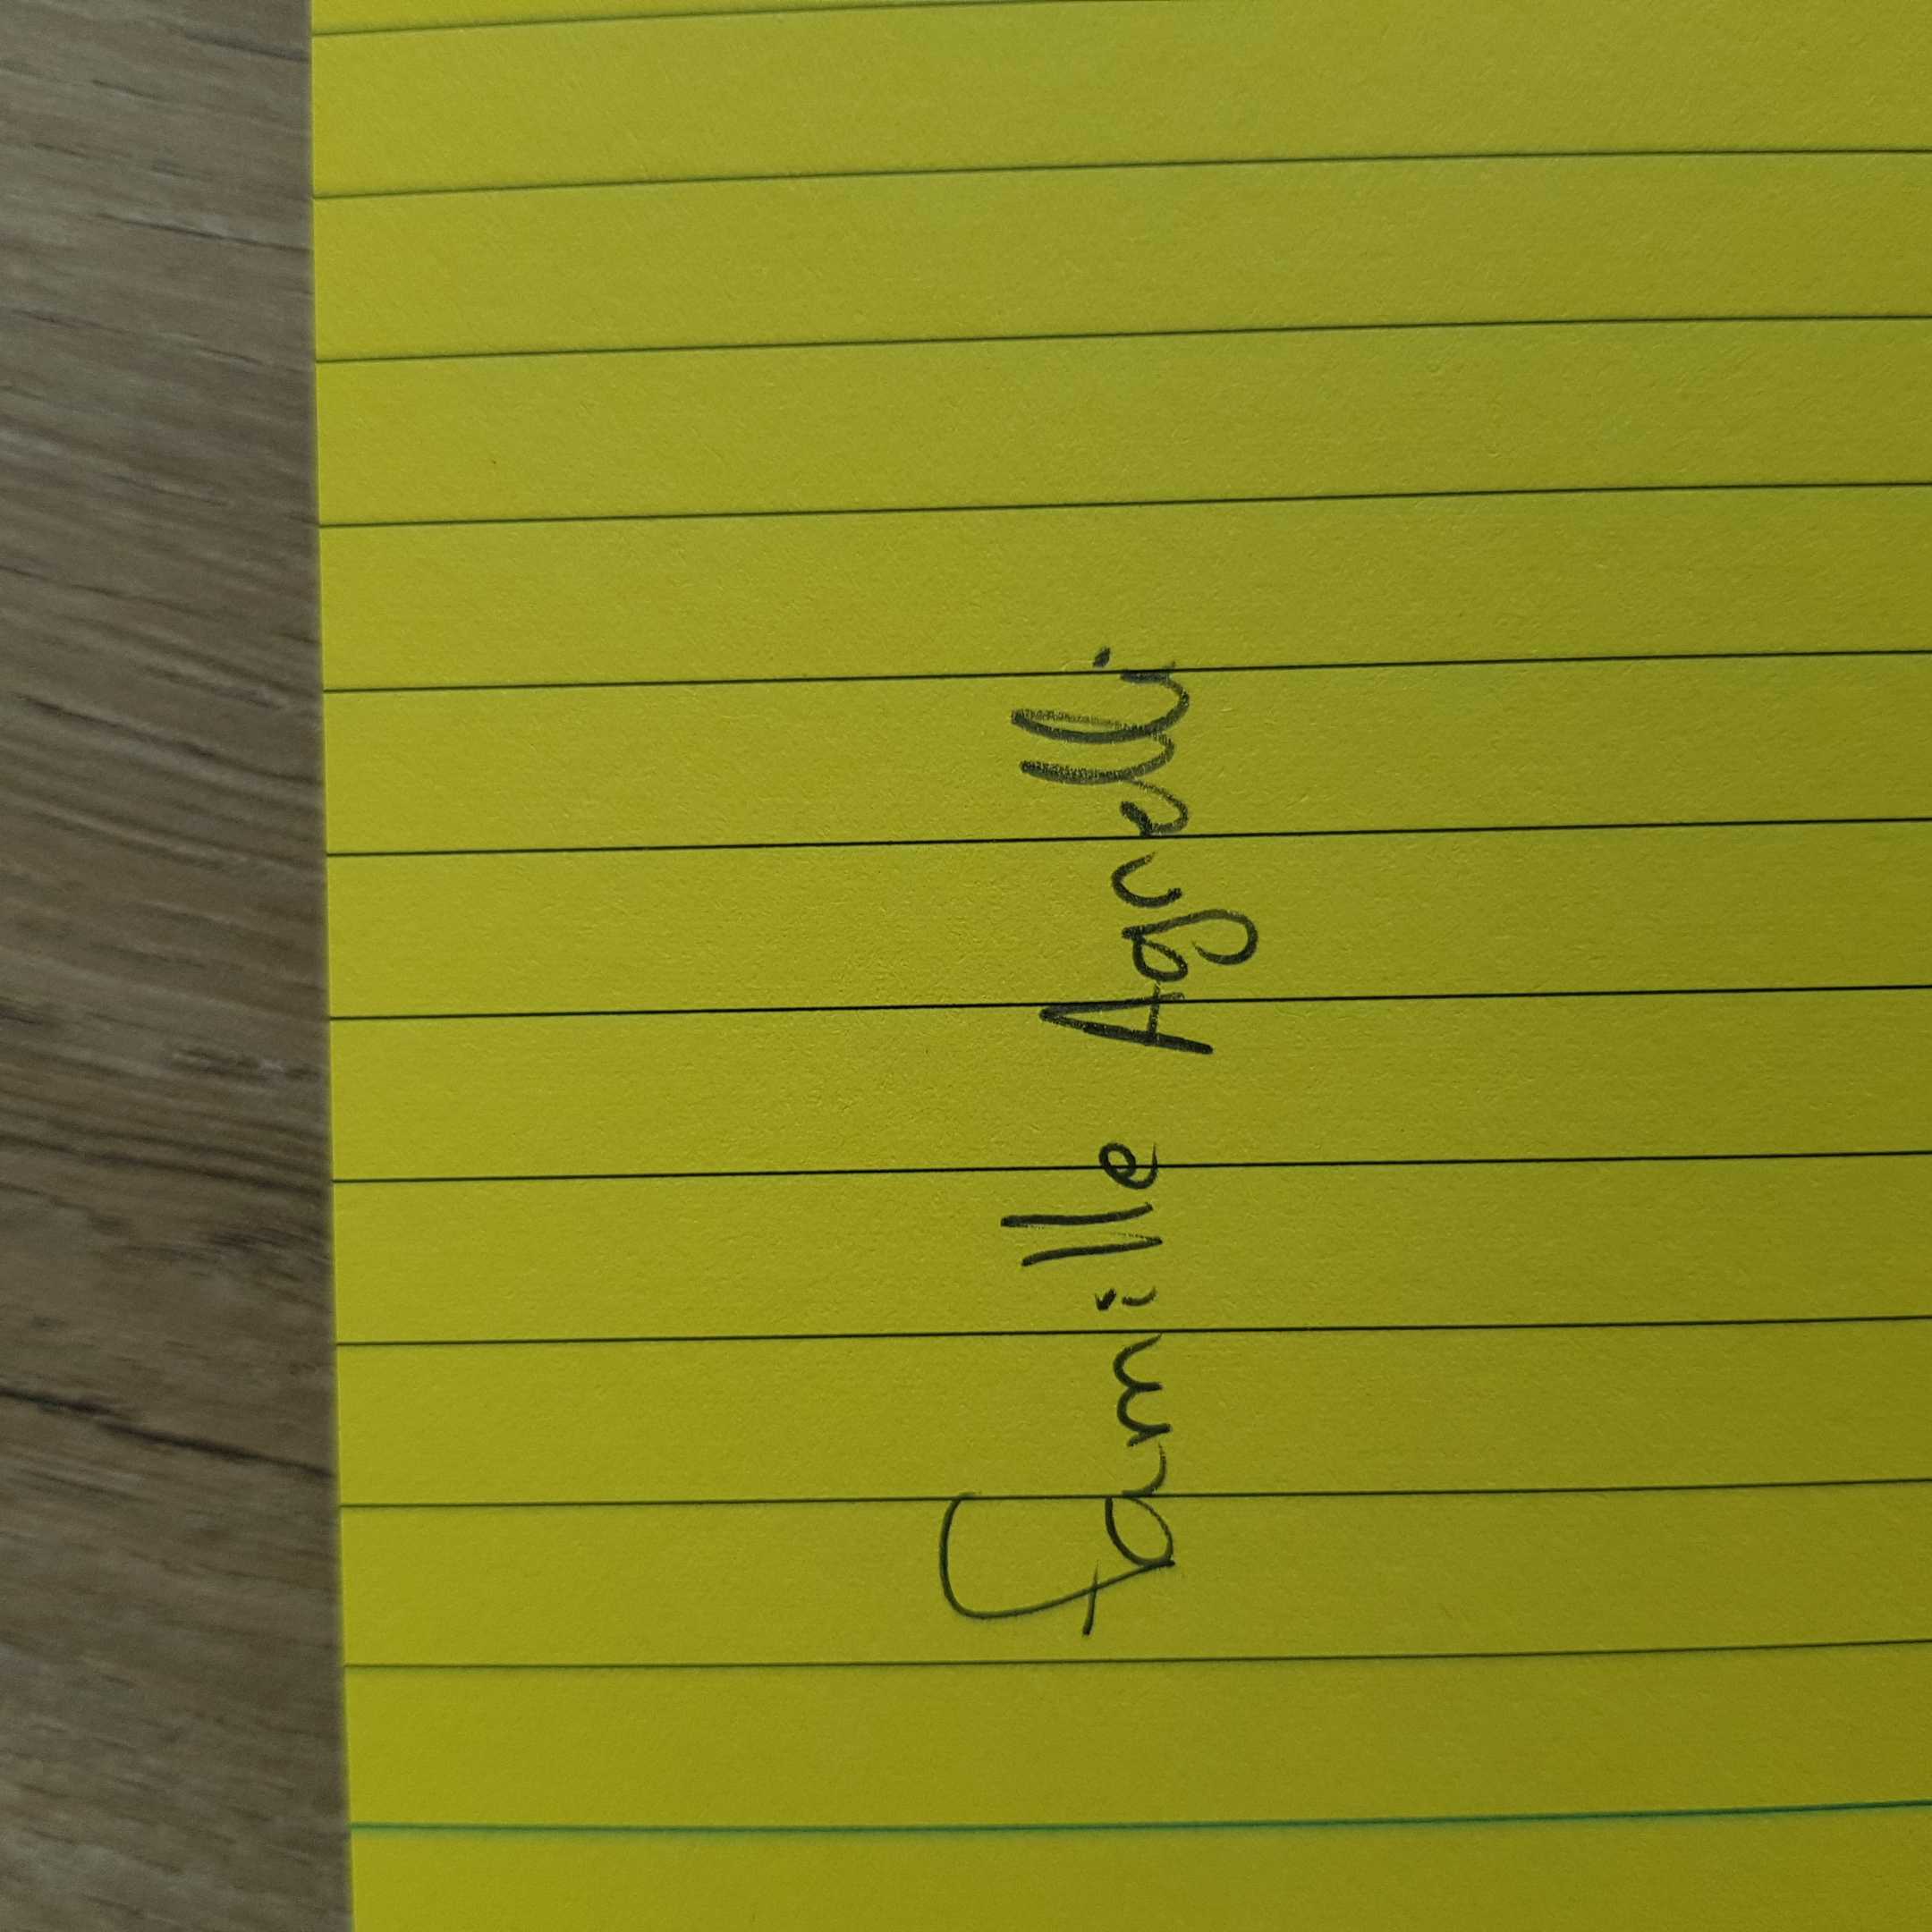 Famille Agnelli